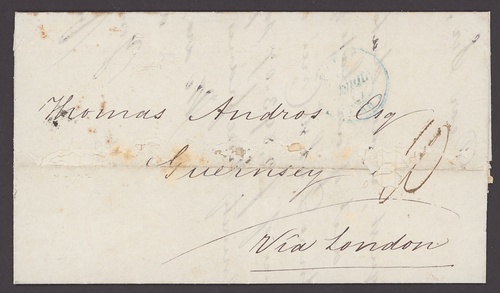 Thomas Andros Esq
Guernsey
Via London